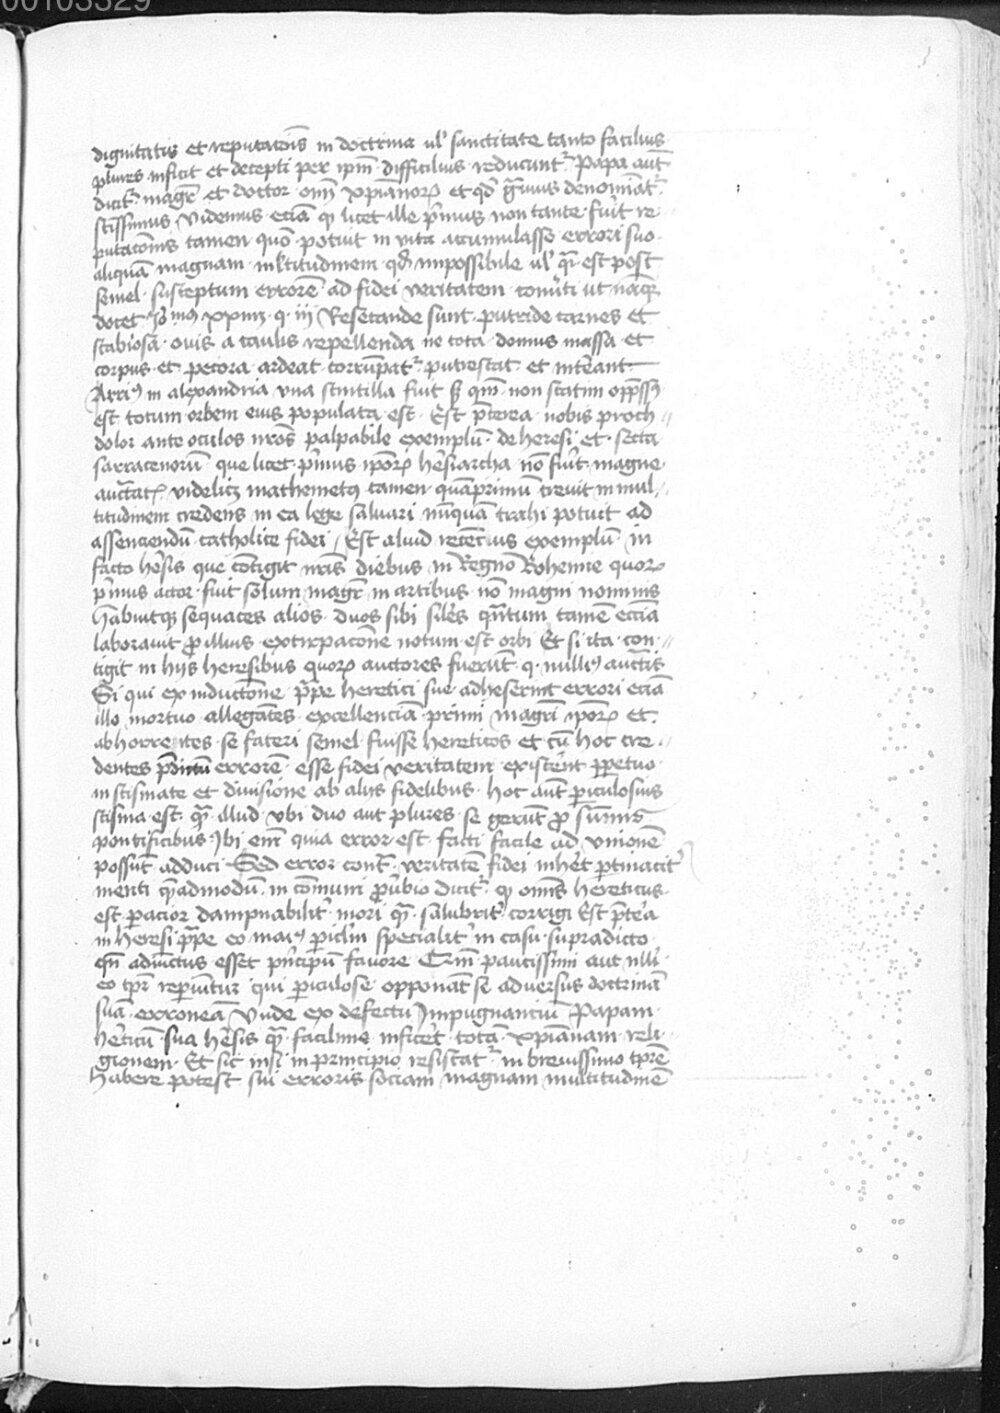 00103329
dignitatis et reputac̄onis in doctrina ul' sanctitate tanto facilius
plures inficit et decepti per ip̄m difficilius reducunt᷑ Papa aūt
dicit᷑ mag̅r et doctor om̄i xp̄ianoꝝ et qd̄ g̅uius denomiāt᷑
sc̄tissimus Videmus eciā ꝙ licet ille p̄mus non tante fūit re
putac̄onis tamen quō potuit in vita accumulasse errori suo
aliquā magnam ml̄titudinem qd̄ impossibile ul' q̄ est post
semel susceptum errorē ad fidei veritatem conūti ut
docet xxiiij q iij Resecande sunt putride carnes et
scabiosa ouis a caulis repellenda ne tota domus massa et
corpus et pecora ardeat corrūpat᷑ putrescat et inteant
Arriꝰ in alexandria vna scintilla fuit sꝫ qm̄ non statim opp̄ssꝰ
est totum orbem eius populata est Est p̄terea nobis proch
dolor ante oculos nr̄os palpabile exemplū de heresi et secta
sarracenorū que licet p̄mus ip̄oꝝ hēsiarcha nō fūit magne
auctāt videlicꝫ mathemetꝰ tamen quāprimū creuit in mul
titudinem credens in ea lege saluari nūquā trahi potuit ad
assenciendū catholice fidei Est aliud recencius exemplū in
facto hēsis que cōtigit nr̄is diebus in Regno Bohemie quoꝝ
p̄mus actor fuit solum mag̅r in artibus nō magni nominis
habuitqꝫ sequaces alios duos sibi siles quātum tamē eccīa
laborauit ꝓ illius extirpac̄one notum est orbi Et si ita con
tigit in hijs heresibus quoꝝ auctores fuerūt q nulliꝰ auct̄is
Si qui ex inductōne pape heretici sue adheserint errori eciā
illo mortuo allegātes excellenciā primi mag̅ri ip̄oꝝ et
abhorrentes se fateri semel fuisse hereticos et cū hoc cre
dentes p̄dictū errorē esse fidei veritatem existēnt ꝑpetuo
in scismate et diuisione ab alijs fidelibus hoc aūt ꝑiculosius
scisma est q̄ illud vbi duo aut plures se gerūt ꝓ sūmis
pontificibus Ibi enī quia error est facti facile ad vnionē
possūt adduci Sed error cont᷑ veritatē fidei inhēt ꝑtinacit᷑
menti q̄admodū in cōmuni ꝓūbio dicit᷑ ꝙ om̄is hereticus
est paracior dampnabilit᷑ mori q̄ salubrit᷑ corrigi Est p̄tea
in heresi pape eo maiꝰ ꝑiclm̄ specialit᷑ in casu supradicto
qn̄ adiunctus esset p̄ncipū fauore Cum paucissimi aut nlli
eo tp̄r reꝑiūtur qui ꝑiculose opponāt se aduersus doctrinā
suā erroneā Vnde ex defectu Impugnanciū Papam
hēticū sua hēsis q̄ facilime inficēt totā xp̄ianam reli
gionem Et sic nisi in principio resistat᷑ in breuissimo tp̄re
habere potest sui erroris sociam magnam multitudinē